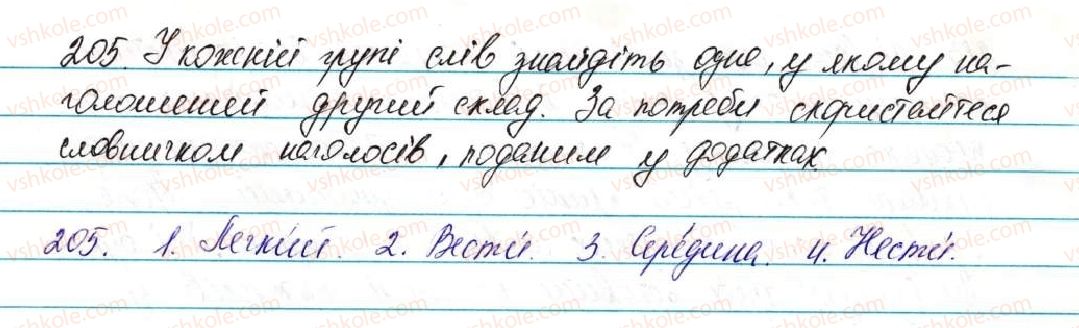 205. У кожній групі слів знайдіть одне, у якому на-
голошений другий склад. За потреби скористайтеся
словничком наголосів, поданим у додатках.
205. 1. Легки́й. 2. Вести́. 3. Сере́дина. 4. Нести́.